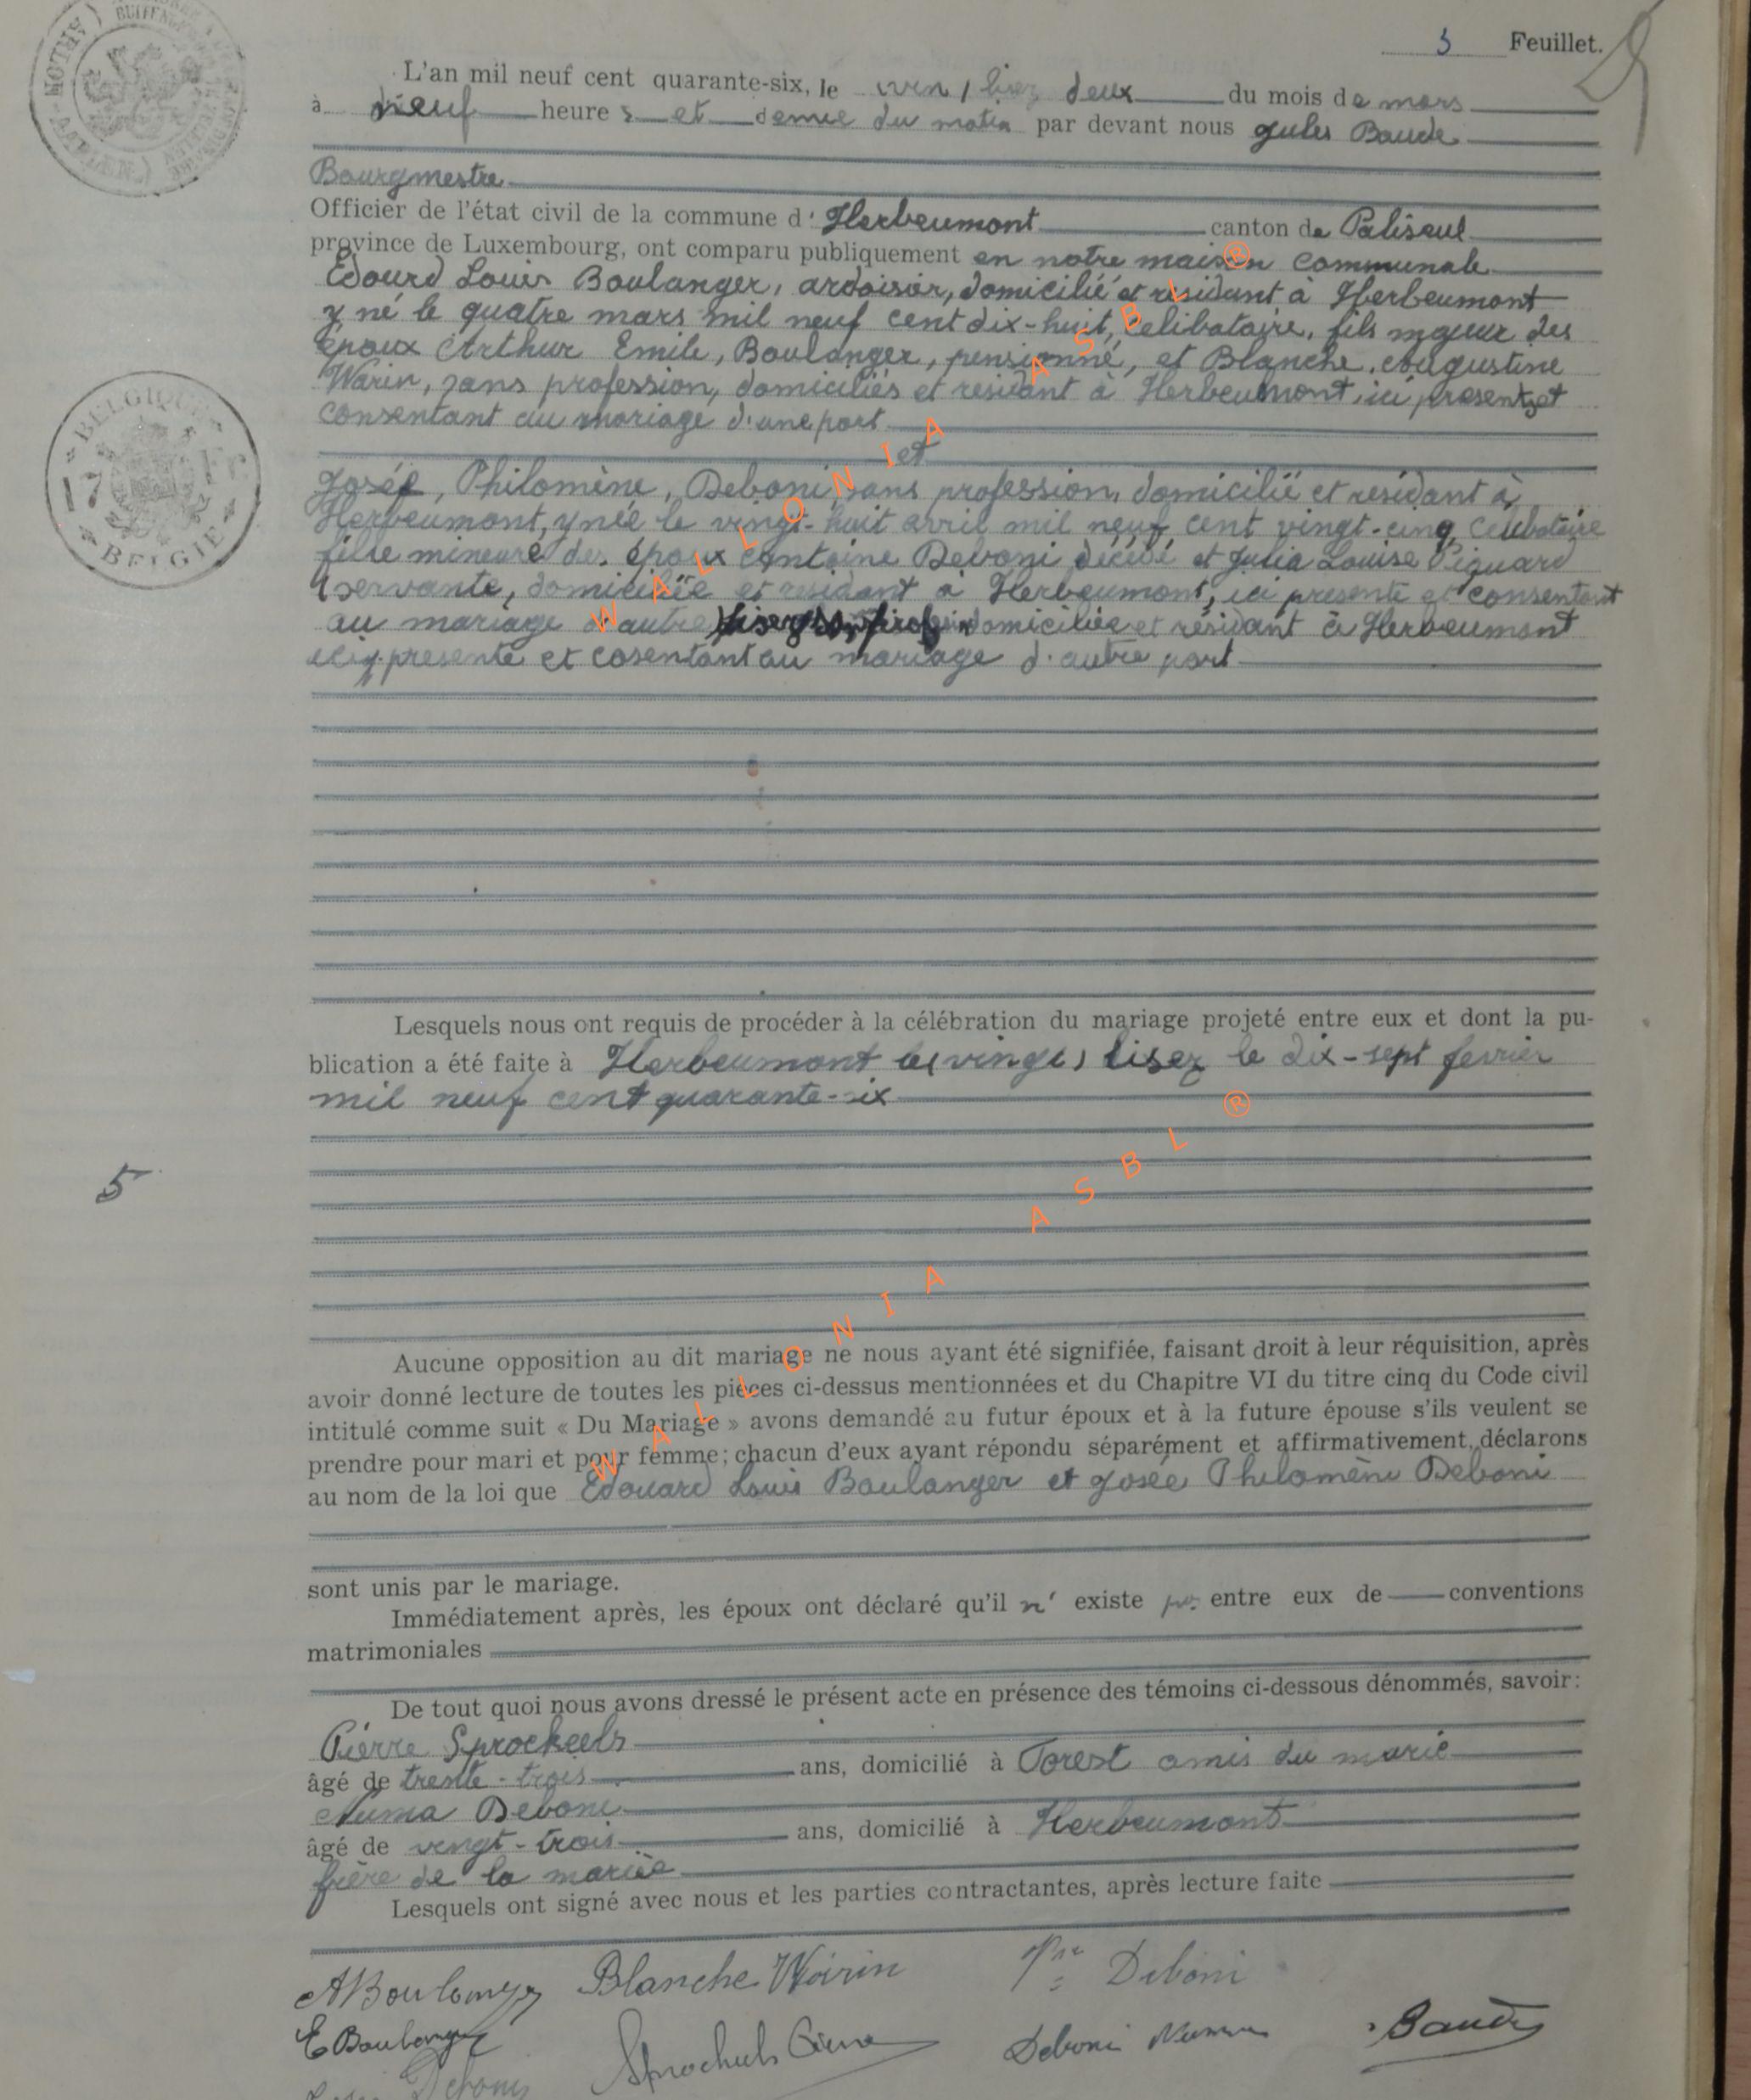 3 Feuillet.
L'an mil neuf cent quarante-six, le un / lisez deux du mois de mars
à neuf heures et demie du matin par devant nous Jules Baude
Bourgmestre
Officier de l'état civil de la commune d'Herbeumont canton de Paliseul
province de Luxembourg, ont comparu publiquement en notre maison communale
Edourd Louis Boulanger, ardoisier, domicilié et résidant à Herbeumont
y né le quatre mars mil neuf cent dix-huit, celibataire, fils majeur des
époux Arthur Emile, Boulanger, pensionné, et Blanche, Augustine
Warin, sans profession, domiciliés et residant à Herbeumont, ici présents et
consentant au mariage d'une part
et
Josée, Philomène, Deboni, sans profession, domicilié et résidant à
Herbeumont, y née le vingt-huit avril mil neuf cent vingt-cinq, celibataire
fille mineure des époux Antoine Deboni décédé et Julia Louise Piguard
(servante, domiciliée et residant à Herbeumont, ici présente et consentant
au mariage d'autre) lisez domiciliée et résidant à Herbeumont
ici présente et cosentant au mariage d'autre part
Lesquels nous ont requis de procéder à la célébration du mariage projeté entre eux et dont la pu-
blication a été faite à Herbeumont le (vingt) lisez le dix-sept fevrier
mil neuf cent quarante-six
5
Aucune opposition au dit mariage ne nous ayant été signifiée, faisant droit à leur réquisition, après
avoir donné lecture de toutes les pièces ci-dessus mentionnées et du Chapitre VI du titre cinq du Code civil
intitulé comme suit « Du Mariage » avons demandé au futur époux et à la future épouse s'ils veulent se
prendre pour mari et pour femme; chacun d'eux ayant répondu séparément et affirmativement, déclarons
au nom de la loi que Edouard Louis Boulanger et Josée Philomène Deboni
sont unis par le mariage.
Immédiatement après, les époux ont déclaré qu'il n' existe pas entre eux de conventions
matrimoniales
De tout quoi nous avons dressé le présent acte en présence des témoins ci-dessous dénommés, savoir:
Pierre Sprockeels
âgé de trente-trois ans, domicilié à Forest amis du marié
Numa Deboni
âgé de vingt-trois ans, domicilié à Herbeumont
frère de la mariée
Lesquels ont signé avec nous et les parties contractantes, après lecture faite
ABoulanger Blanche Woirin Deboni
E Boulanger Sprockeels Pierre Deboni Numa Baude
BELGIQUE
17 F
BELGIE
WALLONIA ASBL ®
WALLONIA ASBL ®